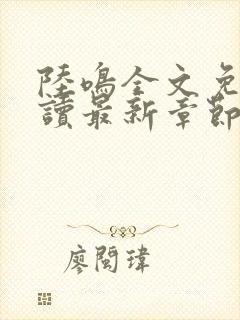 陸鳴全文免
讀最新章節
廖閩瑋